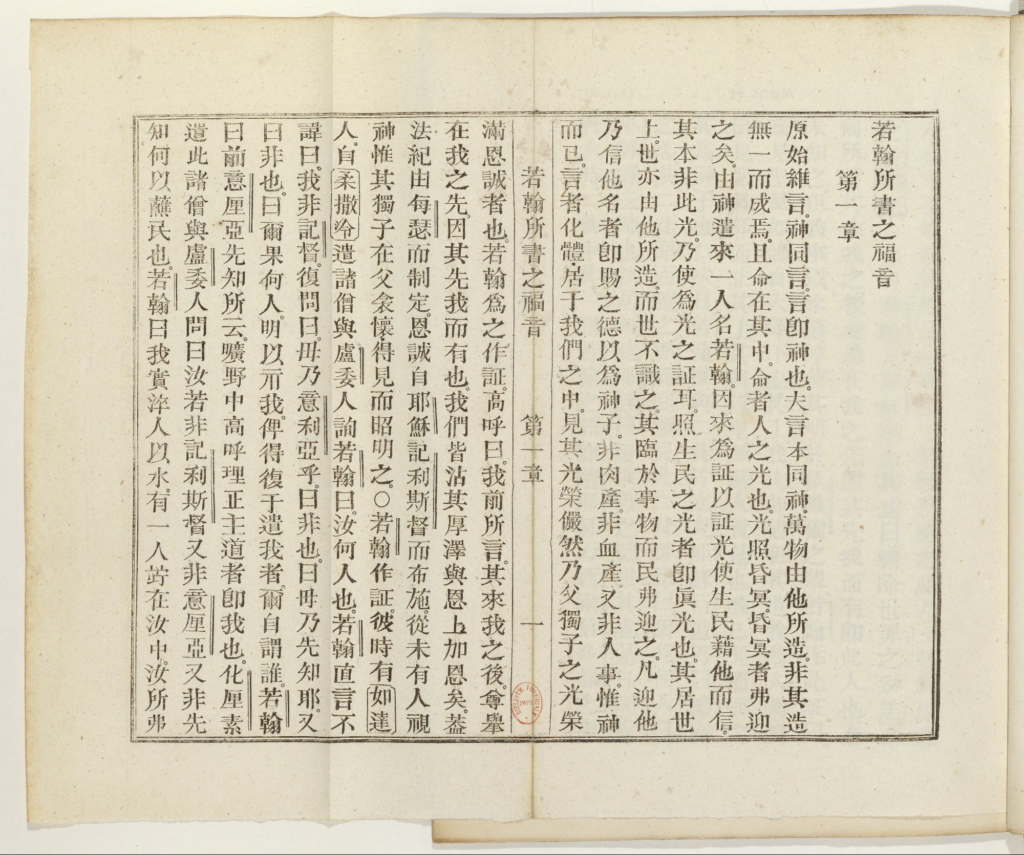 若翰所書之福音
第一章
原始維言。神同言。言卽神也。夫言本同神。萬物由他所造。非其造
無一而成焉。且命在其中。命者人之光也。光照昏冥。昏冥者弗迎
之矣。由神遣來一人名若翰。因來爲証以証光。使生民藉他而信。
其本非此光。乃使爲光之証耳。照生民之光者卽眞光也。其居世
上。世亦由他所造。而世不識之。其臨於事物而民弗迎之。凡迎他
乃信他名者卽賜之德以爲神子。非肉產。非血產。又非人事。惟神
而已。言者化體。居于我們之中。見其光榮儼然乃父獨子之光榮
若翰所書之福音 第一章 一
滿恩誠者也。若翰爲之作証。高呼曰。我前所言。其來我之後。尊舉
在我之先。因其先我而有也。我們皆沾其厚澤與恩上加恩矣。葢
法紀由每瑟而制定。恩誠自耶穌記利斯督而布施。從未有人視
神惟其獨子在父衾懷。得見而昭明之。○若翰作証。彼時有如達
人。自柔撒冷遣諸僧與盧委人詢若翰曰。汝何人也。若翰直言不
諱曰。我非記督。復問曰。毋乃意利亞乎。曰非也。曰毋乃先知耶。又
曰非也。曰爾果何人。明以示我。俾得復于遣我者。爾自謂誰。若翰
曰前意厘亞先知所云。曠野中高呼理正主道者卽我也。化厘素
遣此諸僧與盧委人問曰汝若非記利斯督又非意厘亞又非先
知何以蘸民也。若翰曰我實淬人以水。有一人站在汝中。汝所弗